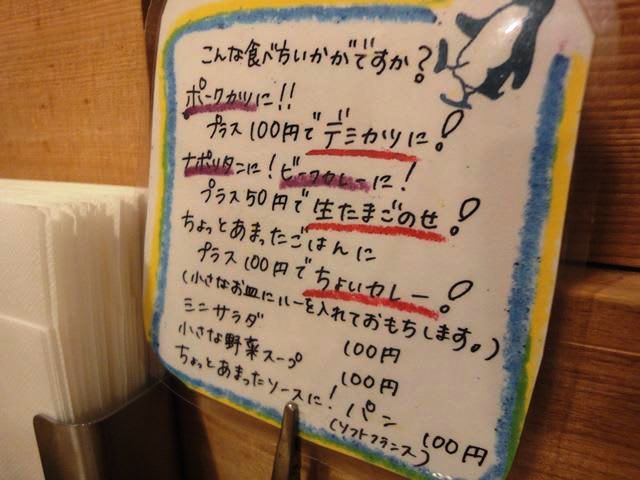 こんな食べちいかがですか?
ポークカツに!!
プラス100円でデミカツに!
ナポリタンに!ビーフカレーに!
プラス50円で生たまごのせ!
ちょっとあまったごはんに
プラス100円でちょいカレー!
(小さなお皿にルーを入れておもちします。)
ミニサラダ 100円
小さな野菜スープ 100円
ちょっとあまったソースに!パン 100円
(ソフトフランス)